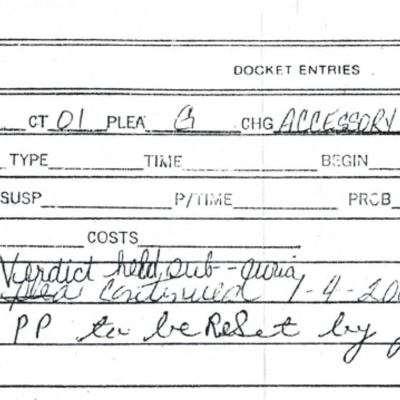 DOCKET ENTRIES
CT 01 PLEA G CHG ACCESSORY
TYPE TIME BEGIN
SUSP P/TIME PROB
COSTS
Verdict held sub-curia
plea continued 1-4-200
PP to be ReSet by